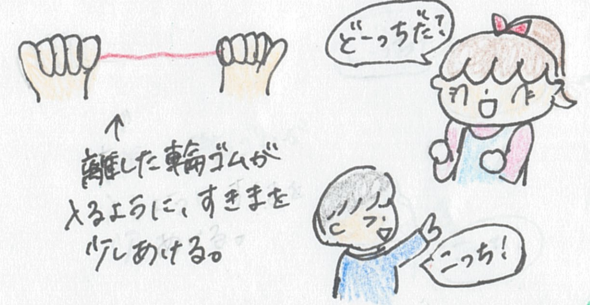 どーっちだ?
↑
離した輪ゴムが
入るように、すきまを
少しあける。
こっち!